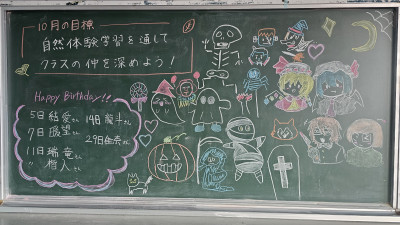 10月の目標
自然体験学習を通して
クラスの仲を深めよう！
Happy Birthday!!
5日 結愛さん
7日 さん
11日 さん
〃 さん
19日 さん
29日 さん